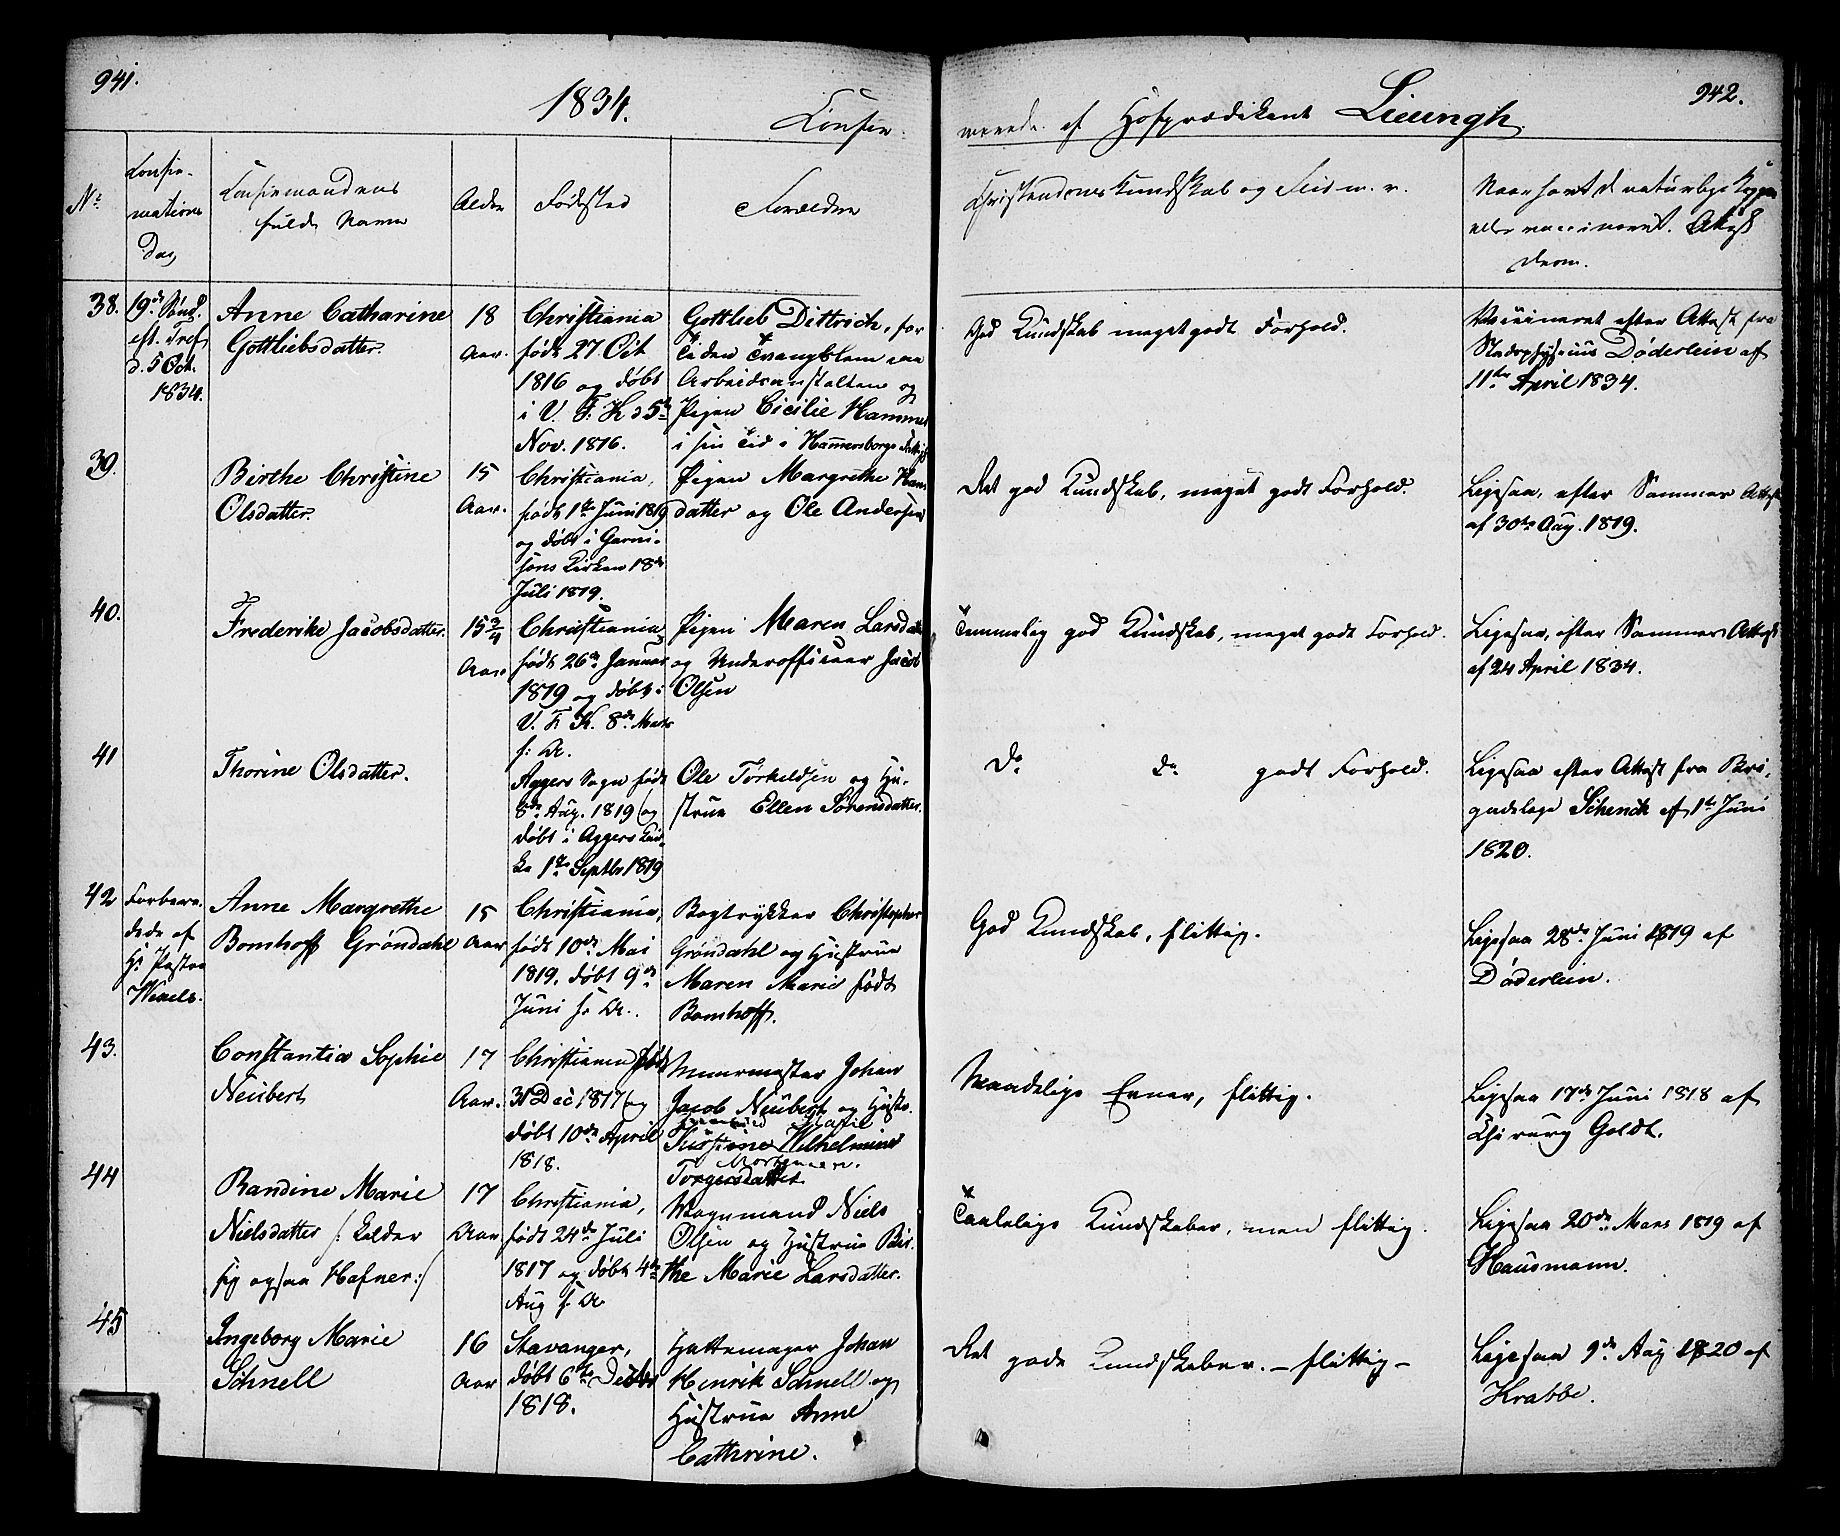 941.
1834.
Confir-
N:
Confir-
mations
Dag
Confirmandens
fulde Navn
Alder
Fødested
Forældre
38.
19de Sønd.
eft. Tref.
d. 5 Oct.
1834.
Anne Catharine
Gottliebsdatter.
18
Aar.
Christiania
født 27 Oct
1816 og døbt
i V. F. K d 5te
Nov. 1816.
Gottlieb Dittrich, for
Tiden Tvangslem paa
Arbeidsanstalten og
Pigen Cicilie Hammer
i sin Tid i Hammersborgs
39.
Birthe Christine
Olsdatter.
15
Aar.
Christiania,
født 1te Juni 1819
og døbt i Garni-
sons Kirken 18de
Juli 1819.
Pigen Margrethe Hans
datter og Ole Andersen
40.
Frederike Jacobsdatter.
15 3/4
Aar
Christiania,
født 26de Januar
1819 og døbt i
V. F. K. 8de Marts
s: A.
Pigen Maren Larsdatter
og Underofficeer Jacob
Olsen
41
Thorine Olsdatter.
Aggers Sogn født
8de Aug. 1819 og
døbt i Aggers Kir-
ke 1te Septbr 1819
Ole Torkeldsen og Hu-
strue Ellen Sørensdatter.
42
Forbere-
dede af
Hr Pastor
Wexels.
Anne Margrethe
Bomhoff Grøndahl
15
Aar
Christiania,
født 10de Mai
1819, døbt 9de
Juni s: A.
Bogtrykker Christopher
Grøndahl og Hustrue
Maren Marie født
Bomhoff.
43.
Constantia Sophie
Neubert
17
Aar.
Christiania født
31 Dec 1817 og
døbt 10de April
1818.
Muurmester Johan
Jacob Neubert og Hustr.
Kirstine Wilhelmine
Torgersdatter
44
Randine Marie
Nielsdatter /: kalder
sig ogsaa Hafner :/
17
Aar
Christiania,
født 24de Juli
1817 og døbt 4de
Aug s: A
Vognmand Niels
Olsen og Hustrue Bir-
the Marie Larsdatter.
45
Ingeborg Marie
Schnell
16
Aar
Stavanger,
døbt 6te Decbr
1818.
Hattemager Johan
Henrik Schnell og
Hustrue Anne
Cathrine.
942.
merede af Hofprædikant Lieungh
Christendoms Kundskab og Flid m. v.
Naar havt d naturlige Kopper
eller vaccineret. Attest
derom.
God Kundskab meget godt Forhold.
Vaccineret efter Attest fra
Stadsphysicus Døderlein af
11te April 1834.
Det god Kundskab, meget godt Forhold.
Ligesaa, efter Sammes Attest
af 30te Aug. 1819.
Temmelig god Kundskab, meget godt Forhold.
Ligesaa, efter Sammes Attest
af 24 April 1834.
Do do godt Forhold.
Ligesaa efter Attest fra Bri-
gadelæge Schenck af 1te Juni
1820.
God Kundskab, flittig.
Ligesaa 28de Juni 1819 af
Døderlein.
Maadelige Evner, flittig.
Ligesaa 17de Juni 1818 af
Chirurg Goldt.
Taalelige Kundskaber, men flittig.
Ligesaa 20de Mars 1819 af
Hausmann.
Det gode Kundskaber. - flittig -
Ligesaa 9de Aug 1820 af
Krabbe.